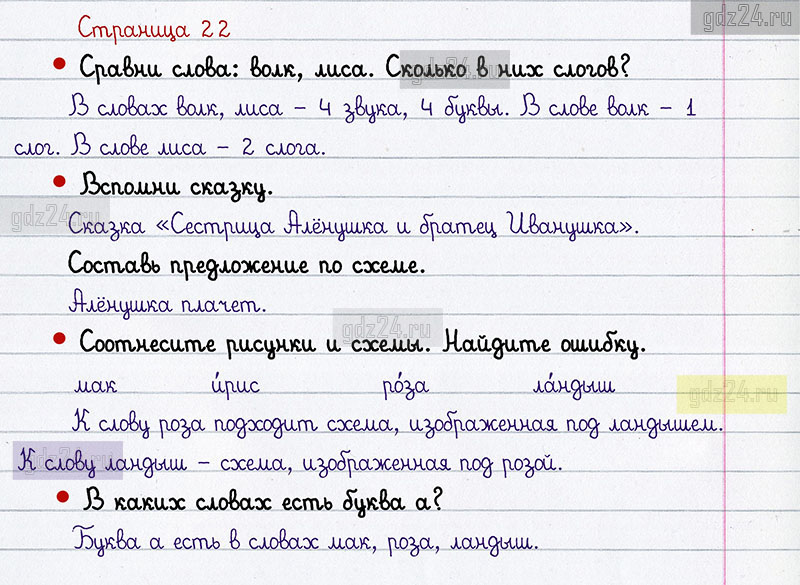 gdz24.ru
Страница 22
• Сравни слова: волк, лиса. Сколько в них слогов?
gdz24.ru
В словах волк, лиса – 4 звука, 4 буквы. В слове волк – 1
слог. В слове лиса – 2 слога.
• Вспомни сказку.
gdz24.ru
Сказка «Сестрица Алёнушка и братец Иванушка».
Составь предложение по схеме.
Алёнушка плачет.
gdz24.ru
• Соотнесите рисунки и схемы. Найдите ошибку.
мак и́рис ро́за ла́ндыш
gdz24.ru
К слову роза подходит схема, изображенная под ландышем.
К слову ландыш – схема, изображенная под розой.
gdz24.ru
• В каких словах есть буква а?
Буква а есть в словах мак, роза, ландыш.